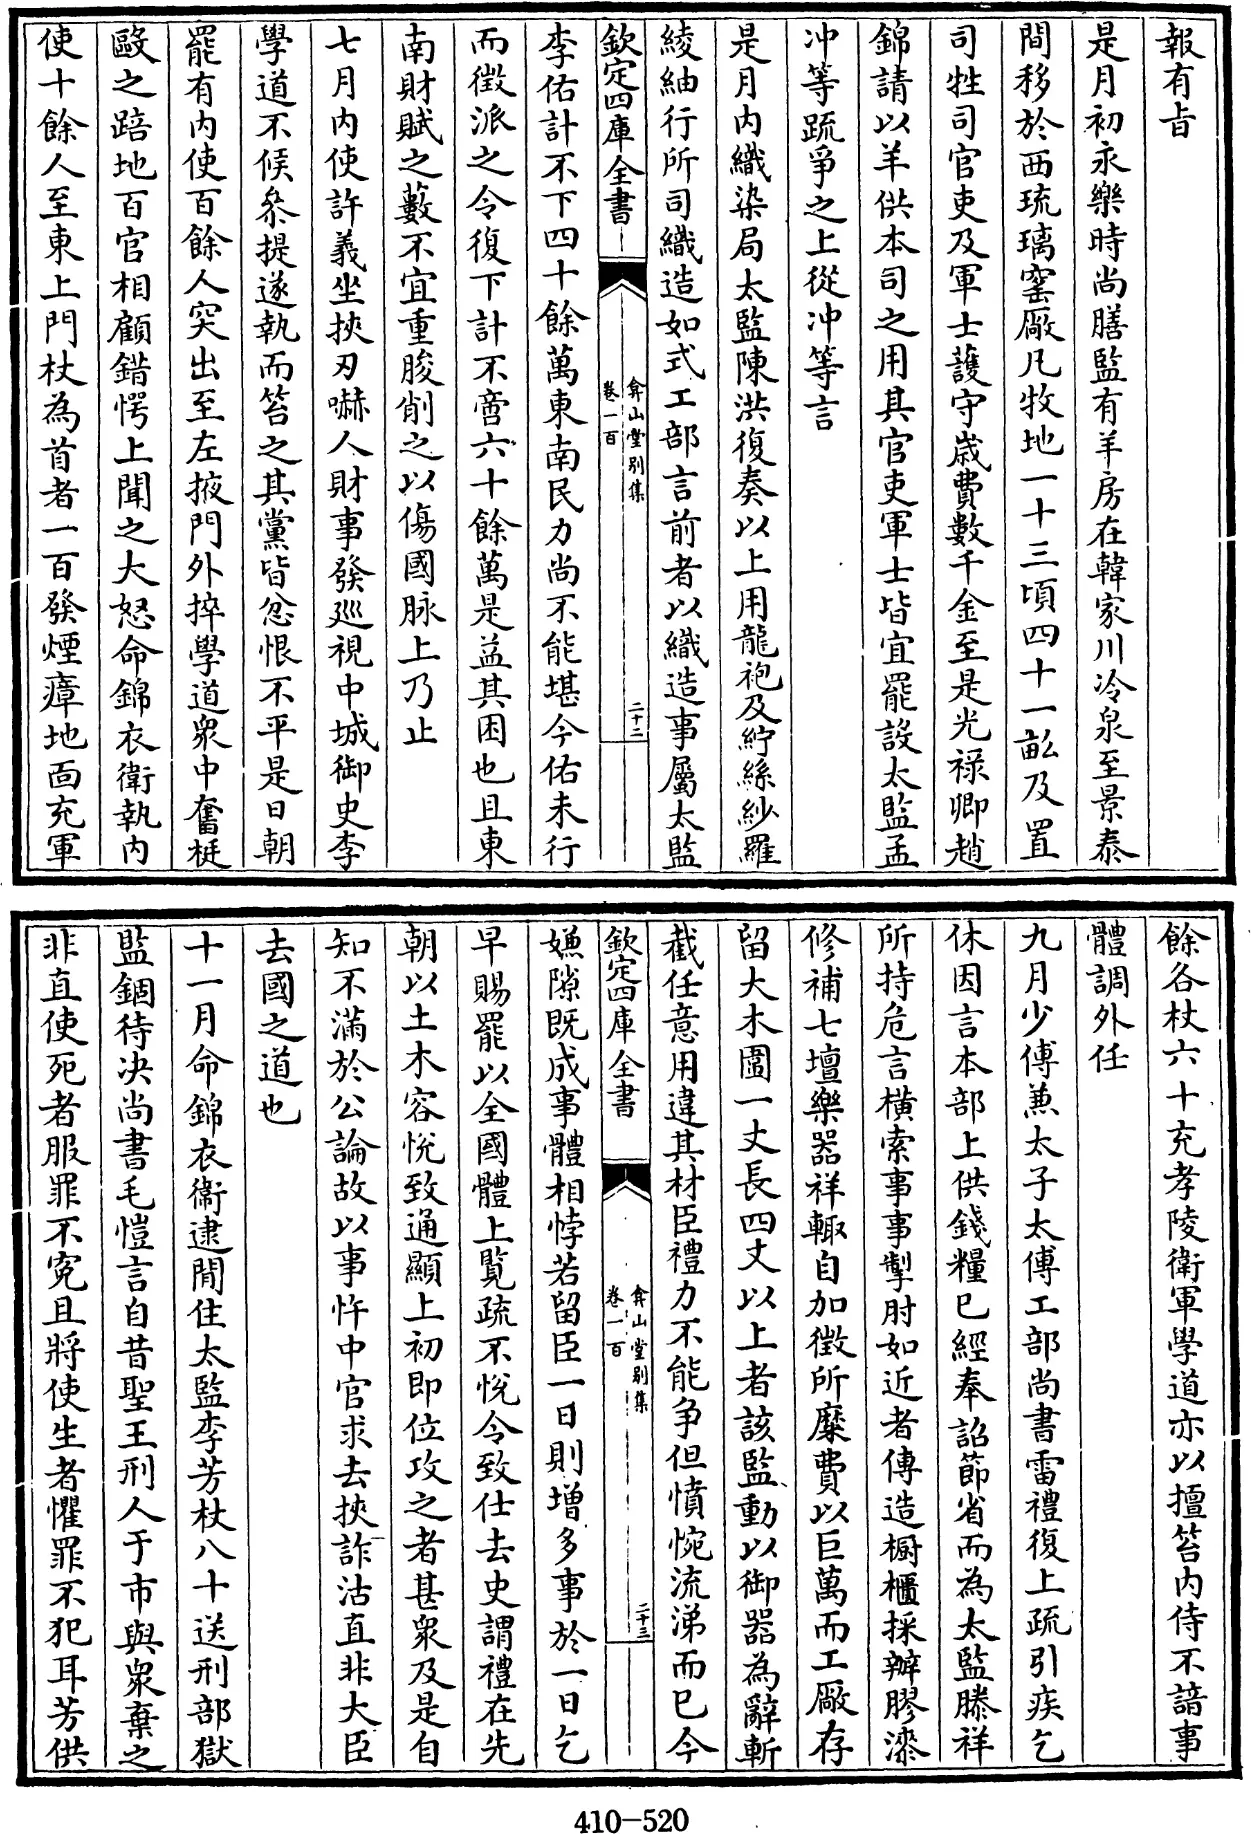 報有旨
是月初永樂時尚膳監有羊房在韓家川冷泉至景泰
間移於西琉璃窰厰凡牧地一十三頃四十一畝及置
司牲司官吏及軍士護守歳費數千金至是光禄卿趙
錦請以羊供本司之用其官吏軍士皆宜罷設太監孟
冲等疏爭之上從冲等言
是月内織染局太監陳洪復奏以上用龍袍及紵絲紗羅
綾紬行所司織造如式工部言前者以織造事屬太監
欽定四庫全書
弇山堂别集
卷一百
二十二
李佑計不下四十餘萬東南民力尚不能堪今佑未行
而徴派之令復下計不啻六十餘萬是益其困也且東
南財賦之藪不宜重朘削之以傷國脉上乃止
七月内使許義坐挾刃嚇人財事發廵視中城御史李
學道不候叅提遂執而笞之其黨皆忿恨不平是日朝
罷有内使百餘人突出至左掖門外捽學道衆中奮梃
毆之踣地百官相顧錯愕上聞之大怒命錦衣衛執内
使十餘人至東上門杖為首者一百發煙瘴地面充軍
餘各杖六十充孝陵衛軍學道亦以擅笞内侍不諳事
體調外任
九月少傅兼太子太傅工部尚書雷禮復上疏引疾乞
休因言本部上供錢糧已經奉詔節省而為太監滕祥
所持危言横索事事掣肘如近者傳造橱櫃採辦膠漆
修補七壇樂器祥輙自加徴所糜費以巨萬而工厰存
留大木圍一丈長四丈以上者該監動以御器為辭斬
截任意用違其材臣禮力不能争但憤惋流涕而已今
欽定四庫全書
弇山堂别集
卷一百
二十三
嫌隙既成事體相悖若留臣一日則増多事於一日乞
早賜罷以全國體上覽疏不悅令致仕去史謂禮在先
朝以土木容悅致通顯上初即位攻之者甚衆及是自
知不滿於公論故以事忤中官求去挾詐沽直非大臣
去國之道也
十一月命錦衣衛逮閒住太監李芳杖八十送刑部獄
監錮待决尚書毛愷言自昔聖王刑人于市與衆棄之
非直使死者服罪不寃且將使生者懼罪不犯耳芳供
410-520